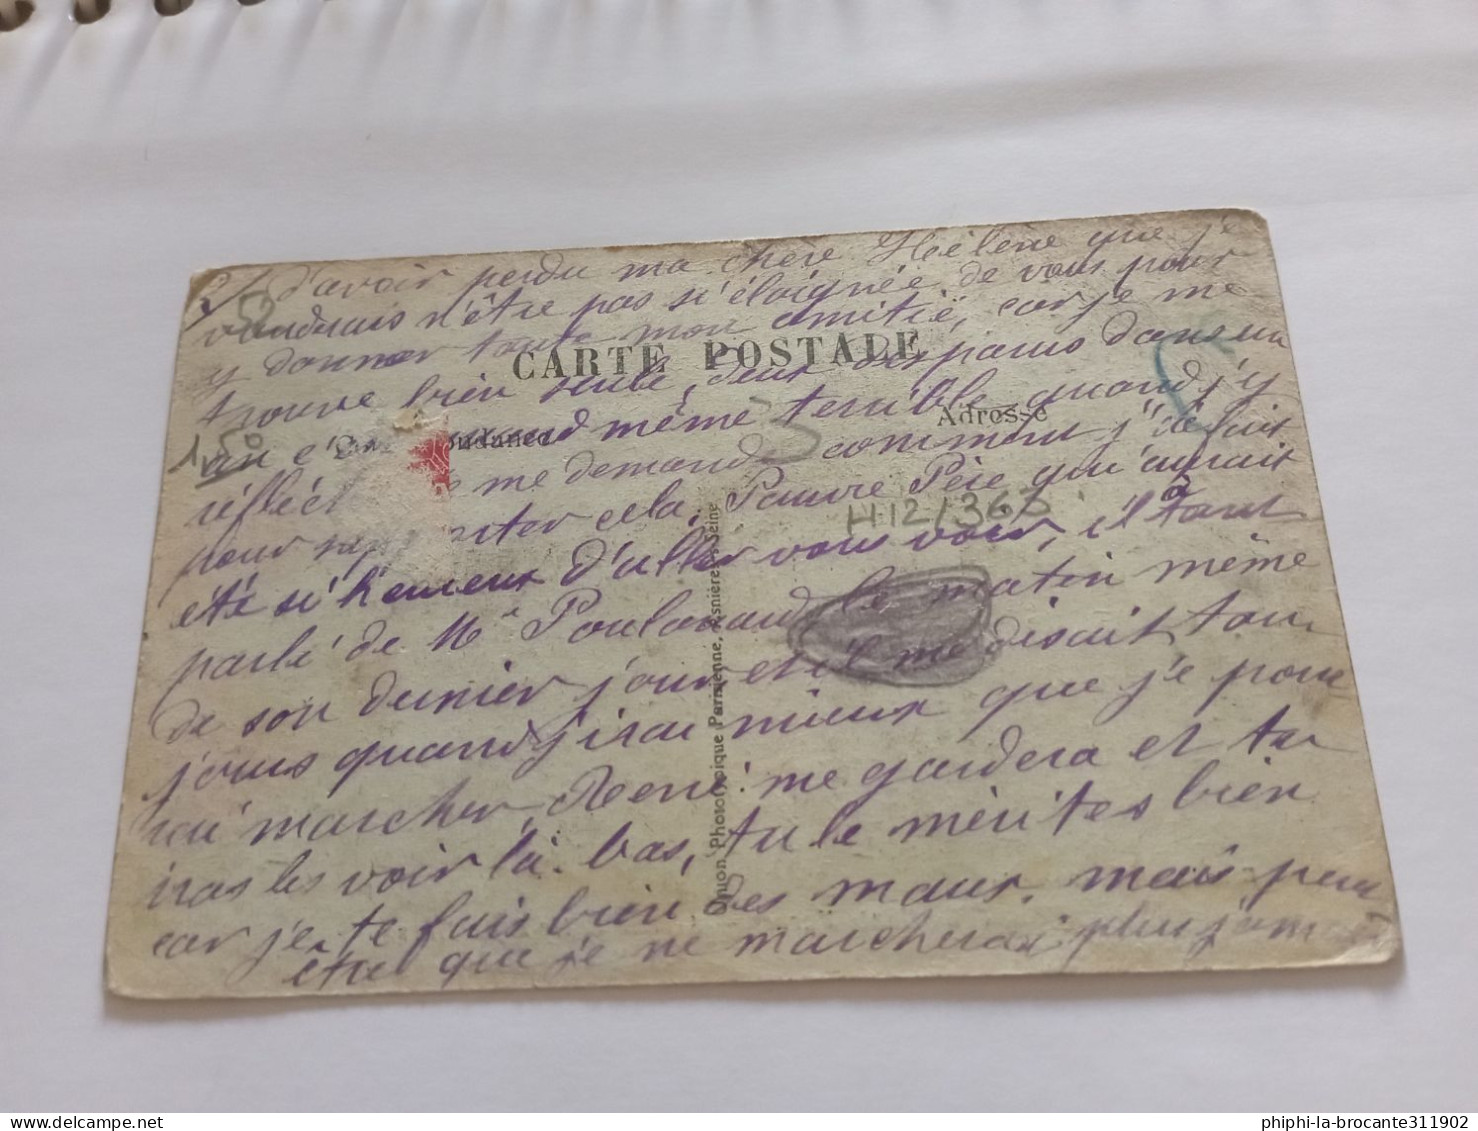 2) d'avoir perdu ma chère Hélène que je
voudrais n'être pas si éloignée de vous pour
y donner toute mon amitié, car je me
CARTE POSTALE
trouve bien seule, deux disparus dans un
Adresse
an c'est quand même terrible quand j'y
Correspondance
1,50
réfléchis je me demande comment j'ai fait
pour supporter cela. Pauvre Père qui aurait
H12/363
été si heureux d'aller vous voir, il a tant
parlé de Me le matin même
de son dernier jour et il me disait tou
jours quand j'irai mieux que je pour
rai marcher, René me gardera et tu
iras les voir là-bas, tu le mérites bien
car je te fais bien des maux. mais peut
être que je ne marcherai plus jamais
Union Photographique Parisienne, Asnières - Seine
phiphi-la-brocante311902